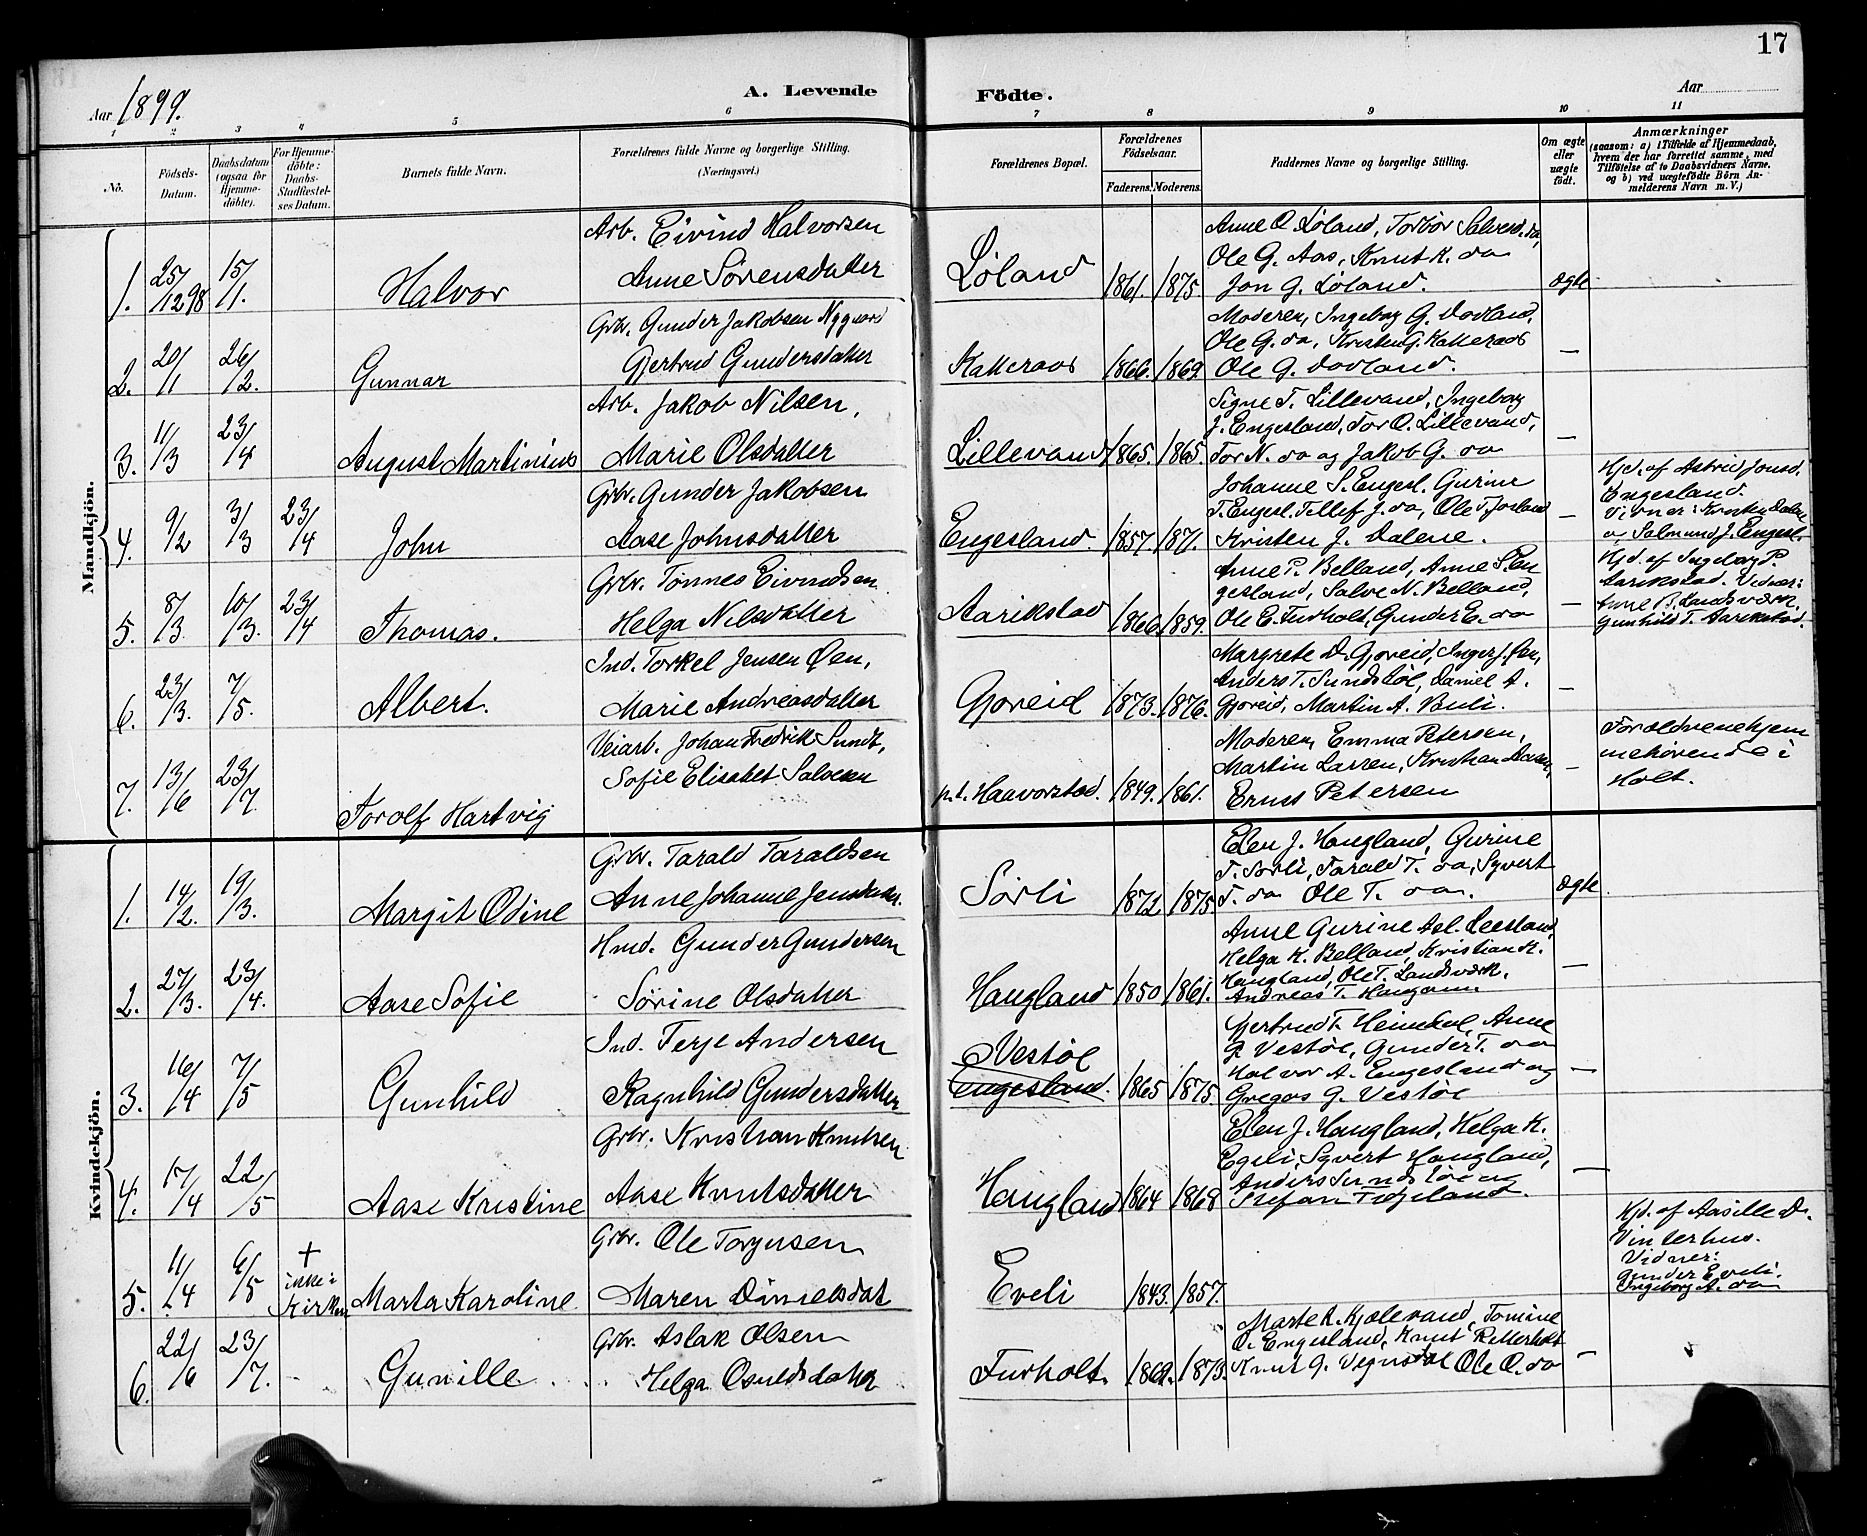 17
Aar 1899.
A. Levende Födte.
Aar
1 2 3 4 5 6 7 8 9 10 11
No.
Födsels-Datum.
Daabsdatum (ogsaa for Hjemme-döbte).
For Hjemme-döbte: Daabs-Stadfæstel-ses Datum.
Barnets fulde Navn.
Forældrenes fulde Navne og borgerlige Stilling. (Næringsvei.)
Forældrenes Bopæl.
Forældrenes Födselsaar.
Faderens. Moderens.
Faddernes Navne og borgerlige Stilling.
Om ægte eller uægte födt.
Anmærkninger
(saasom: a) i Tilfælde af Hjemmedaab, hvem der har forrettet samme, med Tilföielse af to Daabsvidners Navne, og b) ved uægtefödte Börn An-melderens Navn m. V.)
Mandkjön.
1. 25/12 98 15/1. Halvor
Arb. Eivind Halvorsen
Anne Sörensdatter
Løland 1861. 1875.
Anne O. Løland, Torbór Salvesd. do,
Ole G. Aas, Knut K. do
Jon G. Løland.
ægte
2. 20/1 26/2. Gunnar
Grbr. Gunder Jakobsen Nygaard
Gjertrud Gundersdatter
Katteraas 1866. 1869.
Moderen, Ingeborg G. Dovland,
Ole G. do, Kristen G. Katteraas
Ole G. Dovland.
—
3. 11/3 23/4 August Martinius
Arb. Jakob Nilsen,
Marie Olsdatter
Lillevand 1865. 1865.
Signe T. Lillevand, Ingeborg
J. Engesland, Tor O. Lillevand,
Tor N. do og Jakob G. do
—
4. 9/2 3/3 23/4 John
Grbr. Gunder Jakobsen
Aase Johnsdatter
Engesland. 1857. 1871.
Johanne S. Engesl. Gurine
T. Engesl. Tellef J. do, Ole T. Josland
Kristen J. Dalene.
—
Hjd. af Astrid Jonsd.
Engesland.
Vidner: Kristen Dalene
og Salmund J. Engesl.
5. 8/3. 10/3. 23/4 Thomas.
Grbr. Tönnes Eivindsen
Helga Nilsdatter
Aarikstad 1866. 1859.
Anne P. Belland, Anne S. En
gesland, Salve N. Belland,
Ole E. Furholt, Gunder E. do
—
Hjd. af Ingeborg P.
Aarikstad. Vidner:
Anne B. Landsværk.
Gunhild T. Aarikstad.
6. 23/3. 7/5. Albert.
Ind. Torkel Jensen Øen,
Marie Andreasdatter
Gjoreid 1873. 1876.
Margrete D. Gjoreid, Inger J. Øen,
Anders T. Sundstöl, Daniel A.
Gjoreid, Martin A. Buli.
—
7. 13/6 23/7. Torolf Hartvig
Veiarb. Johan Fredrik Sundt,
Sofie Elisabet Salvesen
p.t. Haavorstad. 1849. 1861.
Moderen, Emma Petersen,
Martin Larsen, Kristian
Ernst Petersen
—
Forældrene hjem
mehörende i
Holt.
Kvindekjön.
1. 14/2. 19/3. Margit Odine
Grbr. Tarald Taraldsen
Anne Johanne Jensdatter.
Sörli 1872. 1875.
Elen J. Haugland, Gurine
T. Sörli, Tarald T. do, Syvert
T. do Ole T. do.
ægte
2. 27/3. 23/4. Aase Sofie
Hmd. Gunder Gundersen
Sørine Olsdatter
Haugland 1850 1861.
Anne Gurine Asl. Leesland,
Helga K. Belland, Kristian K.
Haugland, Ole T. Landsværk.
Andreas T. Haugann.
—
3. 16/4 7/5 Gunhild
Ind. Terje Andersen
Ragnhild Gundersdatter
Vestöl
Engesland. 1865 1875.
Gjertrud T. Heimdal, Anne
G. Vestöl, Gunder T. do
Halvor A. Engesland og
Gregos G. Vestöl
—
4. 17/4 22/5 Aase Kristine
Grbr. Kristian Knutsen
Aase Knutsdatter
Haugland 1864 1868
Elen J. Haugland, Helga K.
Egeli, Syvert Haugland,
Anders Sundstöl og
Stefan Tveiland.
—
5. 11/4 6/5 + ikke i Kirken Marta Karoline
Grbr. Ole Torjusen
Maren Danielsdat
Eveli 1843. 1857.
Hjd. af Aasille D.
Vinterhus.
Vidner:
Gunder Eveli.
Ingeborg A. do
6. 22/6 23/7. Gunille
Grbr. Aslak Olsen
Helga Osuldsdatter
Furholt. 1862. 1873.
Marte K. Kjölevand, Tomine
O. Engesland, Knut Retterholt
Knut G. Vegusdal Ole O. do
—